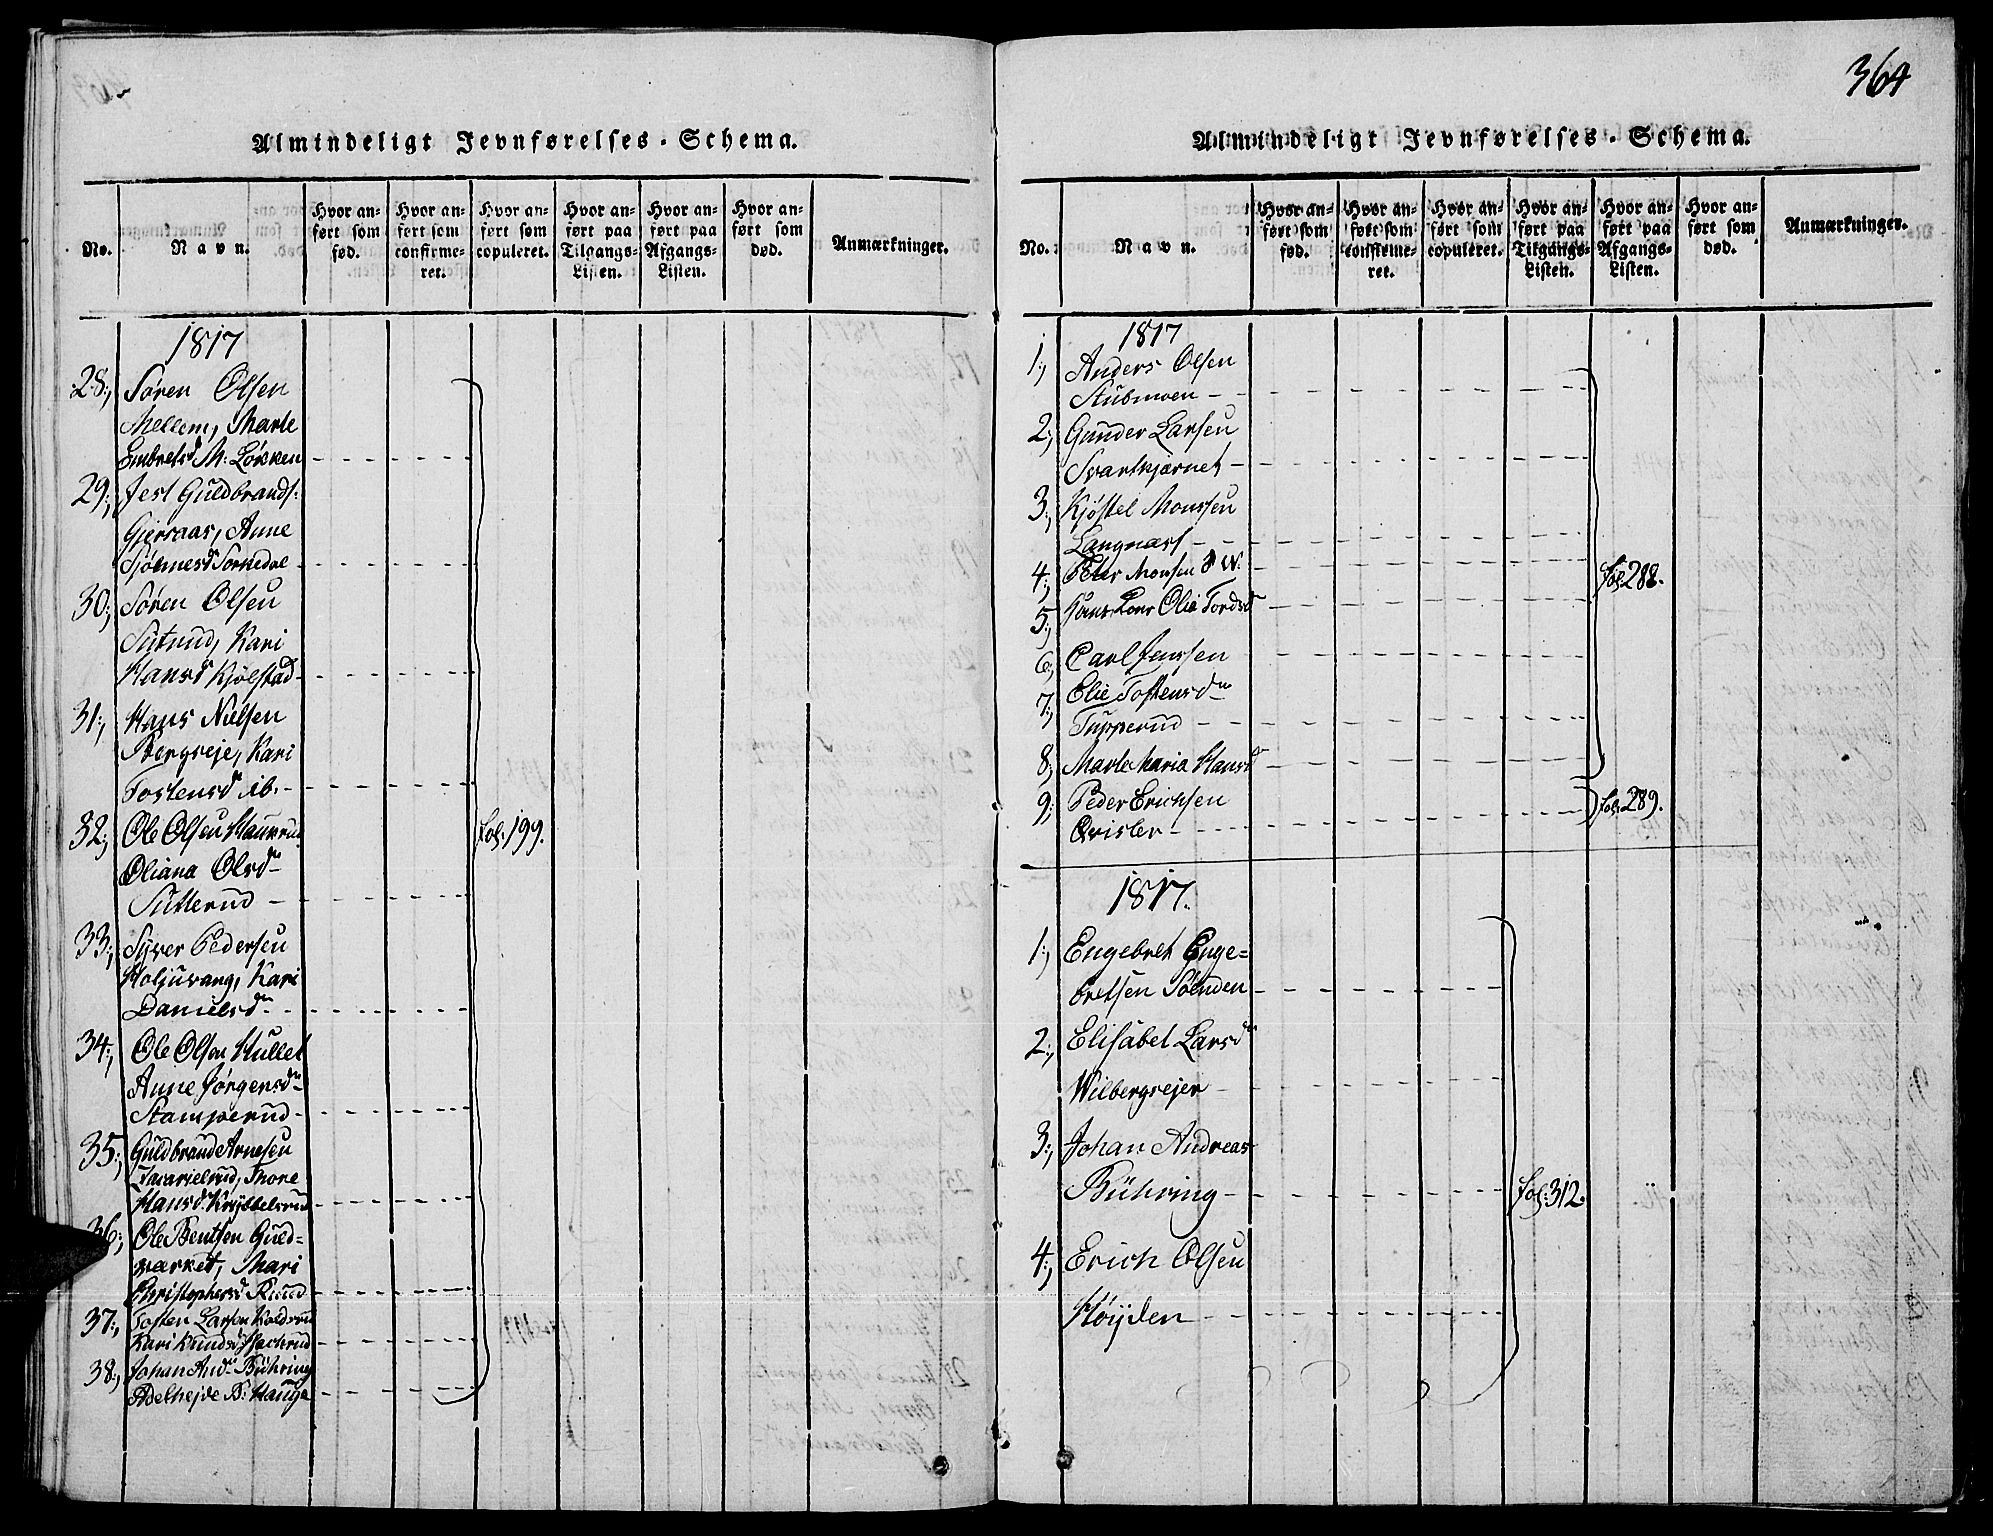 364
Almindeligt Jevnførelses-Schema.
No.
Navn.
Hvor anført som fød.
Hvor anført som confirmeret.
Hvor anført som copuleret.
Hvor anført paa Tilgangs-Listen.
Hvor anført paa Afgangs-Listen.
Hvor anført som død.
Anmærkninger.
1817
28., Søren Olsen
Mellem, Marte
Embretsd. M: Løkken
29., Jest Guldbrands:
Anne
30., Søren Olsen
Kari
Hansd Kjølstad
31., Hans Nielsen
Bergseje, Kari
Tostensd ib.
32., Ole Olsen
Oliana Olsd
Sutterud
fol: 199.
33., Syver Pedersen
Holjuvang, Kari
Danielsd
34., Ole Olsen Hullet
Anne Jørgensd
Stamperud
35., Guldbrand Arnesen
Thore
Hansd
36., Ole Bentsen Guld-
værket, Mari
Christophersd Ruud
37., Tosten Larsen
Kari Knudsd
38., Johan And. Bühring
Adelhejde B: Hauge
Almindeligt Jevnførelses-Schema.
No.
Navn.
Hvor anført som fød.
Hvor anført som confirmeret.
Hvor anført som copuleret.
Hvor anført paa Tilgangs-Listen.
Hvor anført paa Afgangs-Listen.
Hvor anført som død.
Anmærkninger.
1817
1., Anders Olsen
Stubmoen
2., Gunder Larsen
Svartkjærnet
3., Kjöstel Monssen
Langnæss
4., Peter Monsen
fol: 288.
5., Hans Olie Tordsd
6., Carl Jenssen
7., Elie Tostensd
Tupperud
8., Marte Maria Hansd
9., Peder Erichsen
Qvisler
fol: 289.
1817.
1., Engebret Enge=
bretsen Sønden
2., Elisabet Larsd
Wilbergsejer
3., Johan Andreas
Bühring
fol: 312.
4., Erich Olsen
Höyden